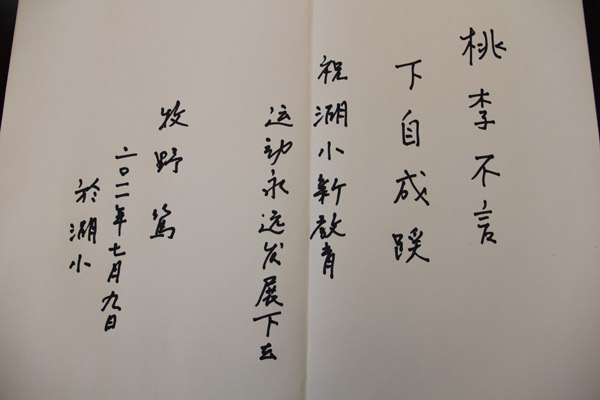 桃李不言
下自成蹊
祝湖小新教育
运动永远发展下去
牧野篤
二〇一一年七月九日
於湖小